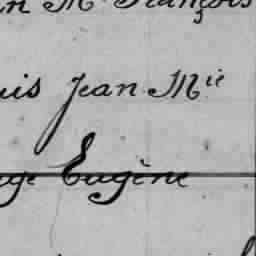 n M François
uis Jean Mie
ge Eugène